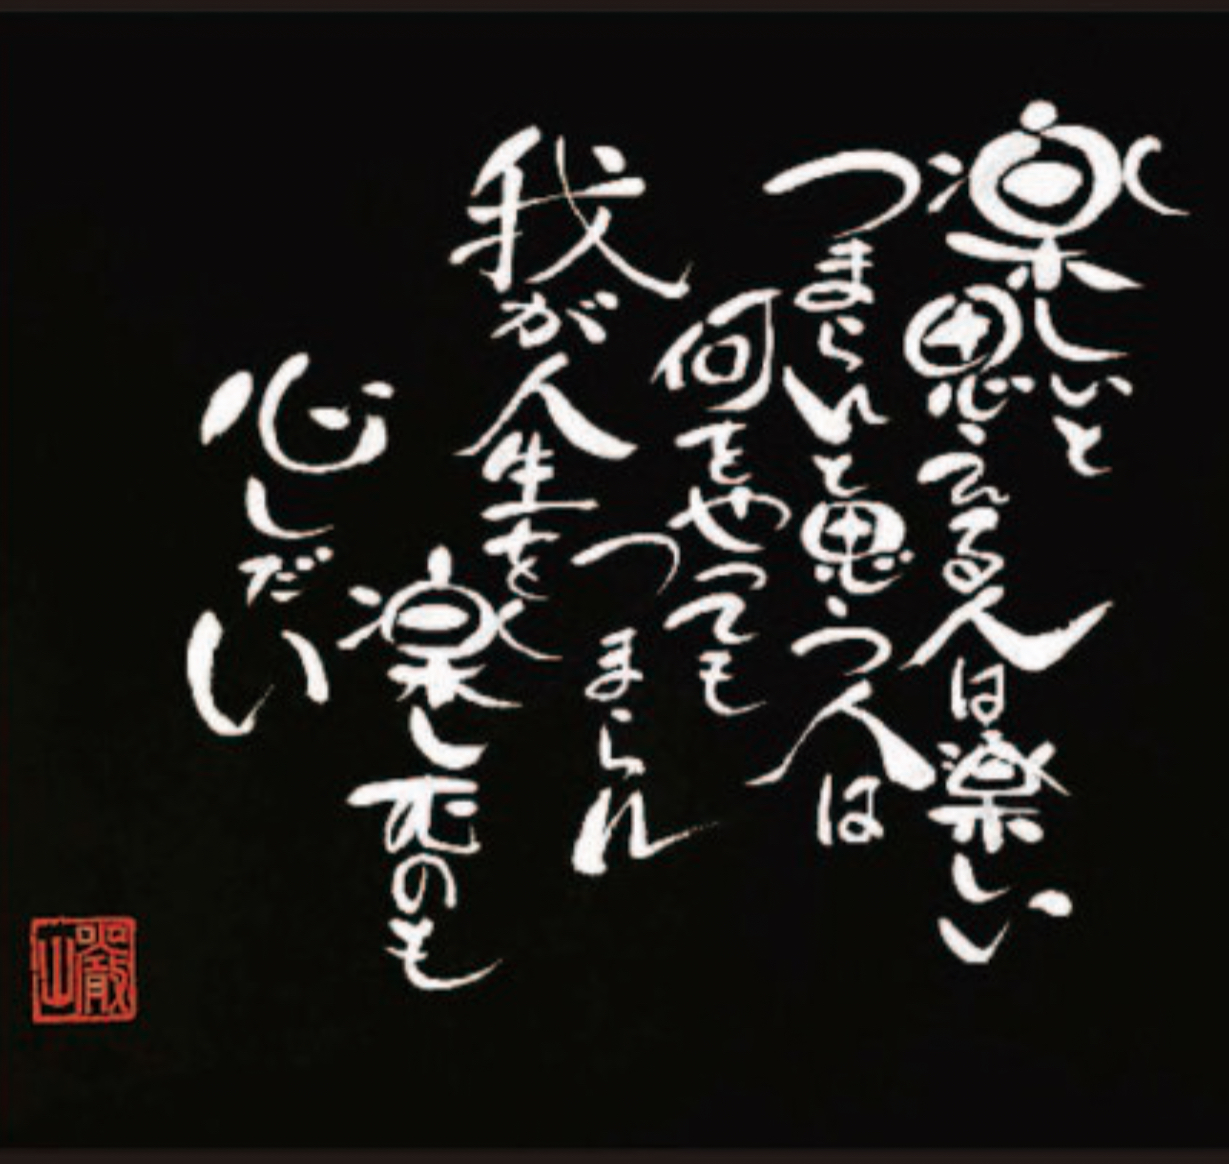 楽しいと
思える人は楽しい
つまらんと思う人は
何をやっても
つまらん
我が人生を
楽しむのも
心しだい
巖山